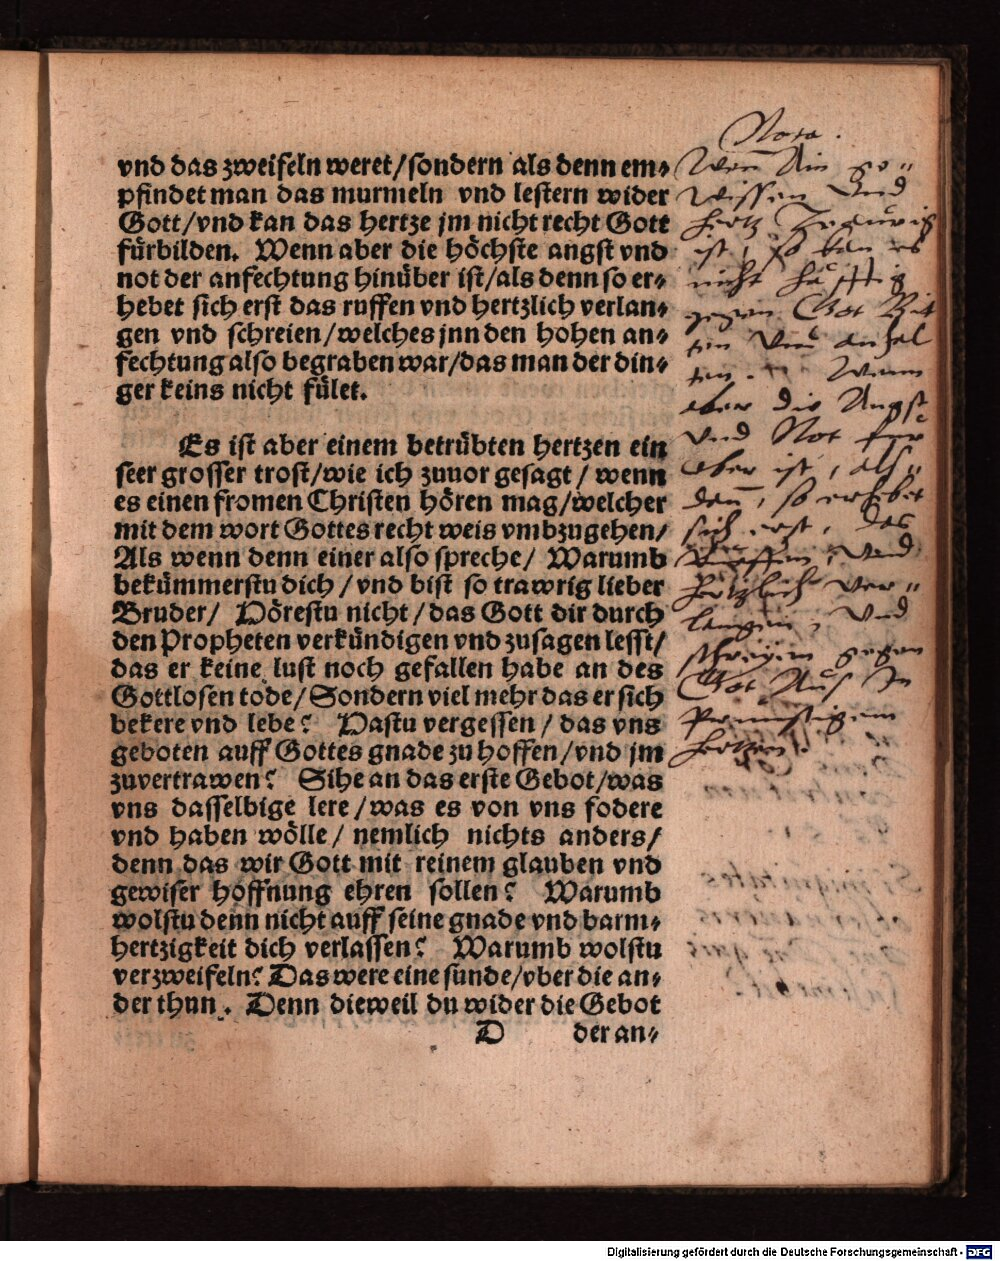 vnd das zweifeln weret/sondern als denn em⸗
pfindet man das murmeln vnd lestern wider
Gott/vnd kan das hertze jm nicht recht Gott
fürbilden. Wenn aber die höchste angst vnd
not der anfechtung hinüber ist/als denn so er⸗
hebet sich erst das ruffen vnd hertzlich verlan⸗
gen vnd schreien/welches jnn den hohen an⸗
fechtung also begraben war/das man der din⸗
ger keins nicht fület.
Es ist aber einem betrübten hertzen ein
seer grosser trost/wie ich zuuor gesagt/wenn
es einen fromen Christen hören mag/welcher
mit dem wort Gottes recht weis vmbzugehen/
Als wenn denn einer also spreche/ Warumb
bekümmerstu dich/vnd bist so trawrig lieber
Bruder/ Hörestu nicht/das Gott dir durch
den Propheten verkündigen vnd zusagen lesst/
das er keine lust noch gefallen habe an des
Gottlosen tode/Sondern viel mehr das er sich
bekere vnd lebe? Hastu vergessen/das vns
geboten auff Gottes gnade zu hoffen/vnd jm
zuvertrawen? Sihe an das erste Gebot/was
vns dasselbige lere/was es von vns fodere
vnd haben wölle/ nemlich nichts anders/
denn das wir Gott mit reinem glauben vnd
gewiser hoffnung ehren sollen? Warumb
wolstu denn nicht auff seine gnade vnd barm⸗
hertzigkeit dich verlassen? Warumb wolstu
verzweifeln? Das were eine sünde/vber die an⸗
der thun. Denn dieweil du wider die Gebot
D der an⸗
Nota.
Wen Ain ge⸗
wissen Vnd
hertz Traurig
ist, so kan es
nicht häfftig
gegen Got Bit
ten Vnd anhal
ten. Wenn
aber die Angst
Vnd Not
aber ist, als⸗
den, so erhebet
sich erst, das
Rueffen, Vnd
Hertzlich Ver⸗
langen, Vnd
schreyen gegen
Got Aus
hertzen.
Digitalisierung gefördert durch die Deutsche Forschungsgemeinschaft - DFG